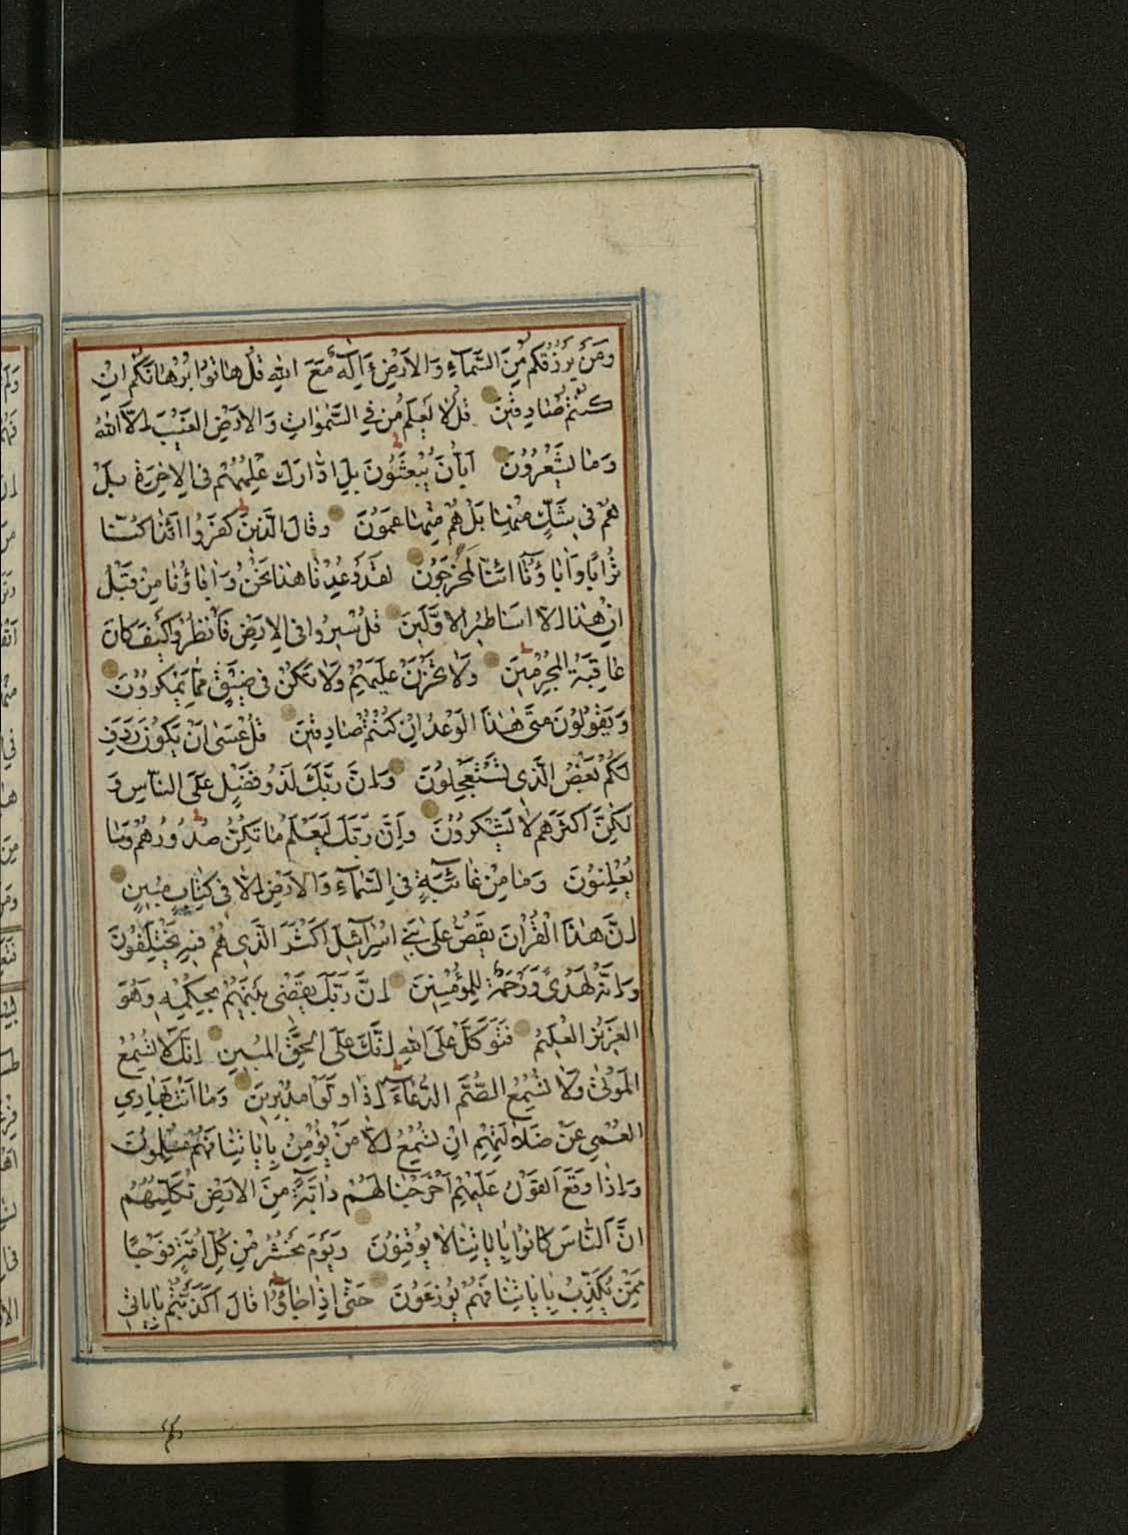 وَمَنْ يَرْزُقُكُمْ مِنَ السَّمَآءِ وَالْاَرْضِ ءَاِلٰهٌ مَعَ اللهِ قُلْ هَاتُوا بُرْهَانَكُمْ اِنْ
كُنْتُمْ صَادِقِينَ قُلْ لَا يَعْلَمُ مَنْ فِي السَّمٰوَاتِ وَالْاَرْضِ الْغَيْبَ اِلَّا اللهُ
وَمَا يَشْعُرُونَ اَيَّانَ يُبْعَثُونَ بَلِ ادَّارَكَ عِلْمُهُمْ فِي الْاٰخِرَةِ بَلْ
هُمْ فِي شَكٍّ مِنْهَا بَلْ هُمْ مِنْهَا عَمُونَ وَقَالَ الَّذِينَ كَفَرُوا اَئِذَا كُنَّا
تُرَابًا وَاٰبَاؤُنَا اَئِنَّا لَمُخْرَجُونَ لَقَدْ وُعِدْنَا هٰذَا نَحْنُ وَاٰبَاؤُنَا مِنْ قَبْلُ
اِنْ هٰذَا اِلَّا اَسَاطِيرُ الْاَوَّلِينَ قُلْ سِيرُوا فِي الْاَرْضِ فَانْظُرُوا كَيْفَ كَانَ
عَاقِبَةُ الْمُجْرِمِينَ وَلَا تَحْزَنْ عَلَيْهِمْ وَلَا تَكُنْ فِي ضَيْقٍ مِمَّا يَمْكُرُونَ
وَيَقُولُونَ مَتٰى هٰذَا الْوَعْدُ اِنْ كُنْتُمْ صَادِقِينَ قُلْ عَسٰى اَنْ يَكُونَ رَدِفَ
لَكُمْ بَعْضُ الَّذِي تَسْتَعْجِلُونَ وَاِنَّ رَبَّكَ لَذُو فَضْلٍ عَلَى النَّاسِ وَ
لٰكِنَّ اَكْثَرَهُمْ لَا يَشْكُرُونَ وَاِنَّ رَبَّكَ لَيَعْلَمُ مَا تُكِنُّ صُدُورُهُمْ وَمَا
يُعْلِنُونَ وَمَا مِنْ غَائِبَةٍ فِي السَّمَآءِ وَالْاَرْضِ اِلَّا فِي كِتَابٍ مُبِينٍ
اِنَّ هٰذَا الْقُرْاٰنَ يَقُصُّ عَلٰى بَنِي اِسْرَآئِيلَ اَكْثَرَ الَّذِي هُمْ فِيهِ يَخْتَلِفُونَ
وَاِنَّهُ لَهُدًى وَرَحْمَةٌ لِلْمُؤْمِنِينَ اِنَّ رَبَّكَ يَقْضِي بَيْنَهُمْ بِحُكْمِهِ وَهُوَ
الْعَزِيزُ الْعَلِيمُ فَتَوَكَّلْ عَلَى اللهِ اِنَّكَ عَلَى الْحَقِّ الْمُبِينِ اِنَّكَ لَا تُسْمِعُ
الْمَوْتٰى وَلَا تُسْمِعُ الصُّمَّ الدُّعَآءَ اِذَا وَلَّوْا مُدْبِرِينَ وَمَا اَنْتَ بِهَادِي
الْعُمْيِ عَنْ ضَلَالَتِهِمْ اِنْ تُسْمِعُ اِلَّا مَنْ يُؤْمِنُ بِاٰيَاتِنَا فَهُمْ مُسْلِمُونَ
وَاِذَا وَقَعَ الْقَوْلُ عَلَيْهِمْ اَخْرَجْنَا لَهُمْ دَآبَّةً مِنَ الْاَرْضِ تُكَلِّمُهُمْ
اَنَّ النَّاسَ كَانُوا بِاٰيَاتِنَا لَا يُوقِنُونَ وَيَوْمَ نَحْشُرُ مِنْ كُلِّ اُمَّةٍ فَوْجًا
مِمَّنْ يُكَذِّبُ بِاٰيَاتِنَا فَهُمْ يُوزَعُونَ حَتّٰى اِذَا جَآؤُا قَالَ اَكَذَّبْتُمْ بِاٰيَاتِي